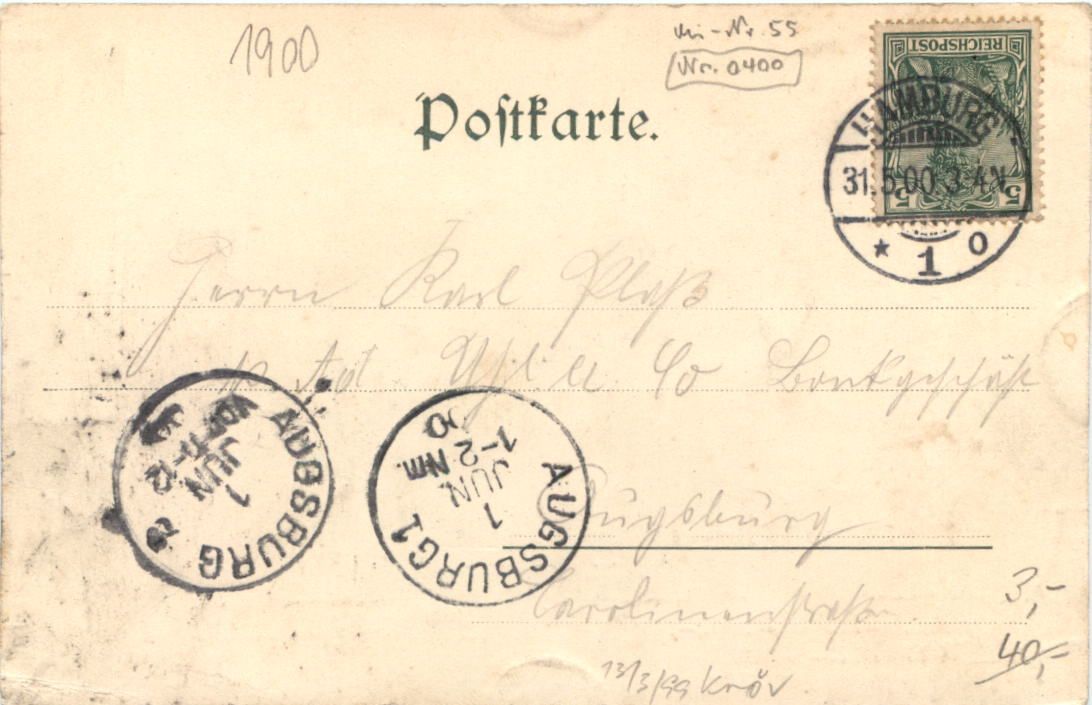 1900
Mi-Nr. 55
Nr. 0400
Postkarte.
REICHSPOST
5 5
HAMBURG
31.5.00.3-4N
* 1 o
Herrn Karl Plaß
Ad. & Co Bankgeschäft
AUGSBURG
1
JUN
VOR 11-12
AUGSBURG 1
1
JUN.
1-2 Nm.
00
Augsburg
Carolinenstraße
3,-
40,-
13/3/99 Kröv